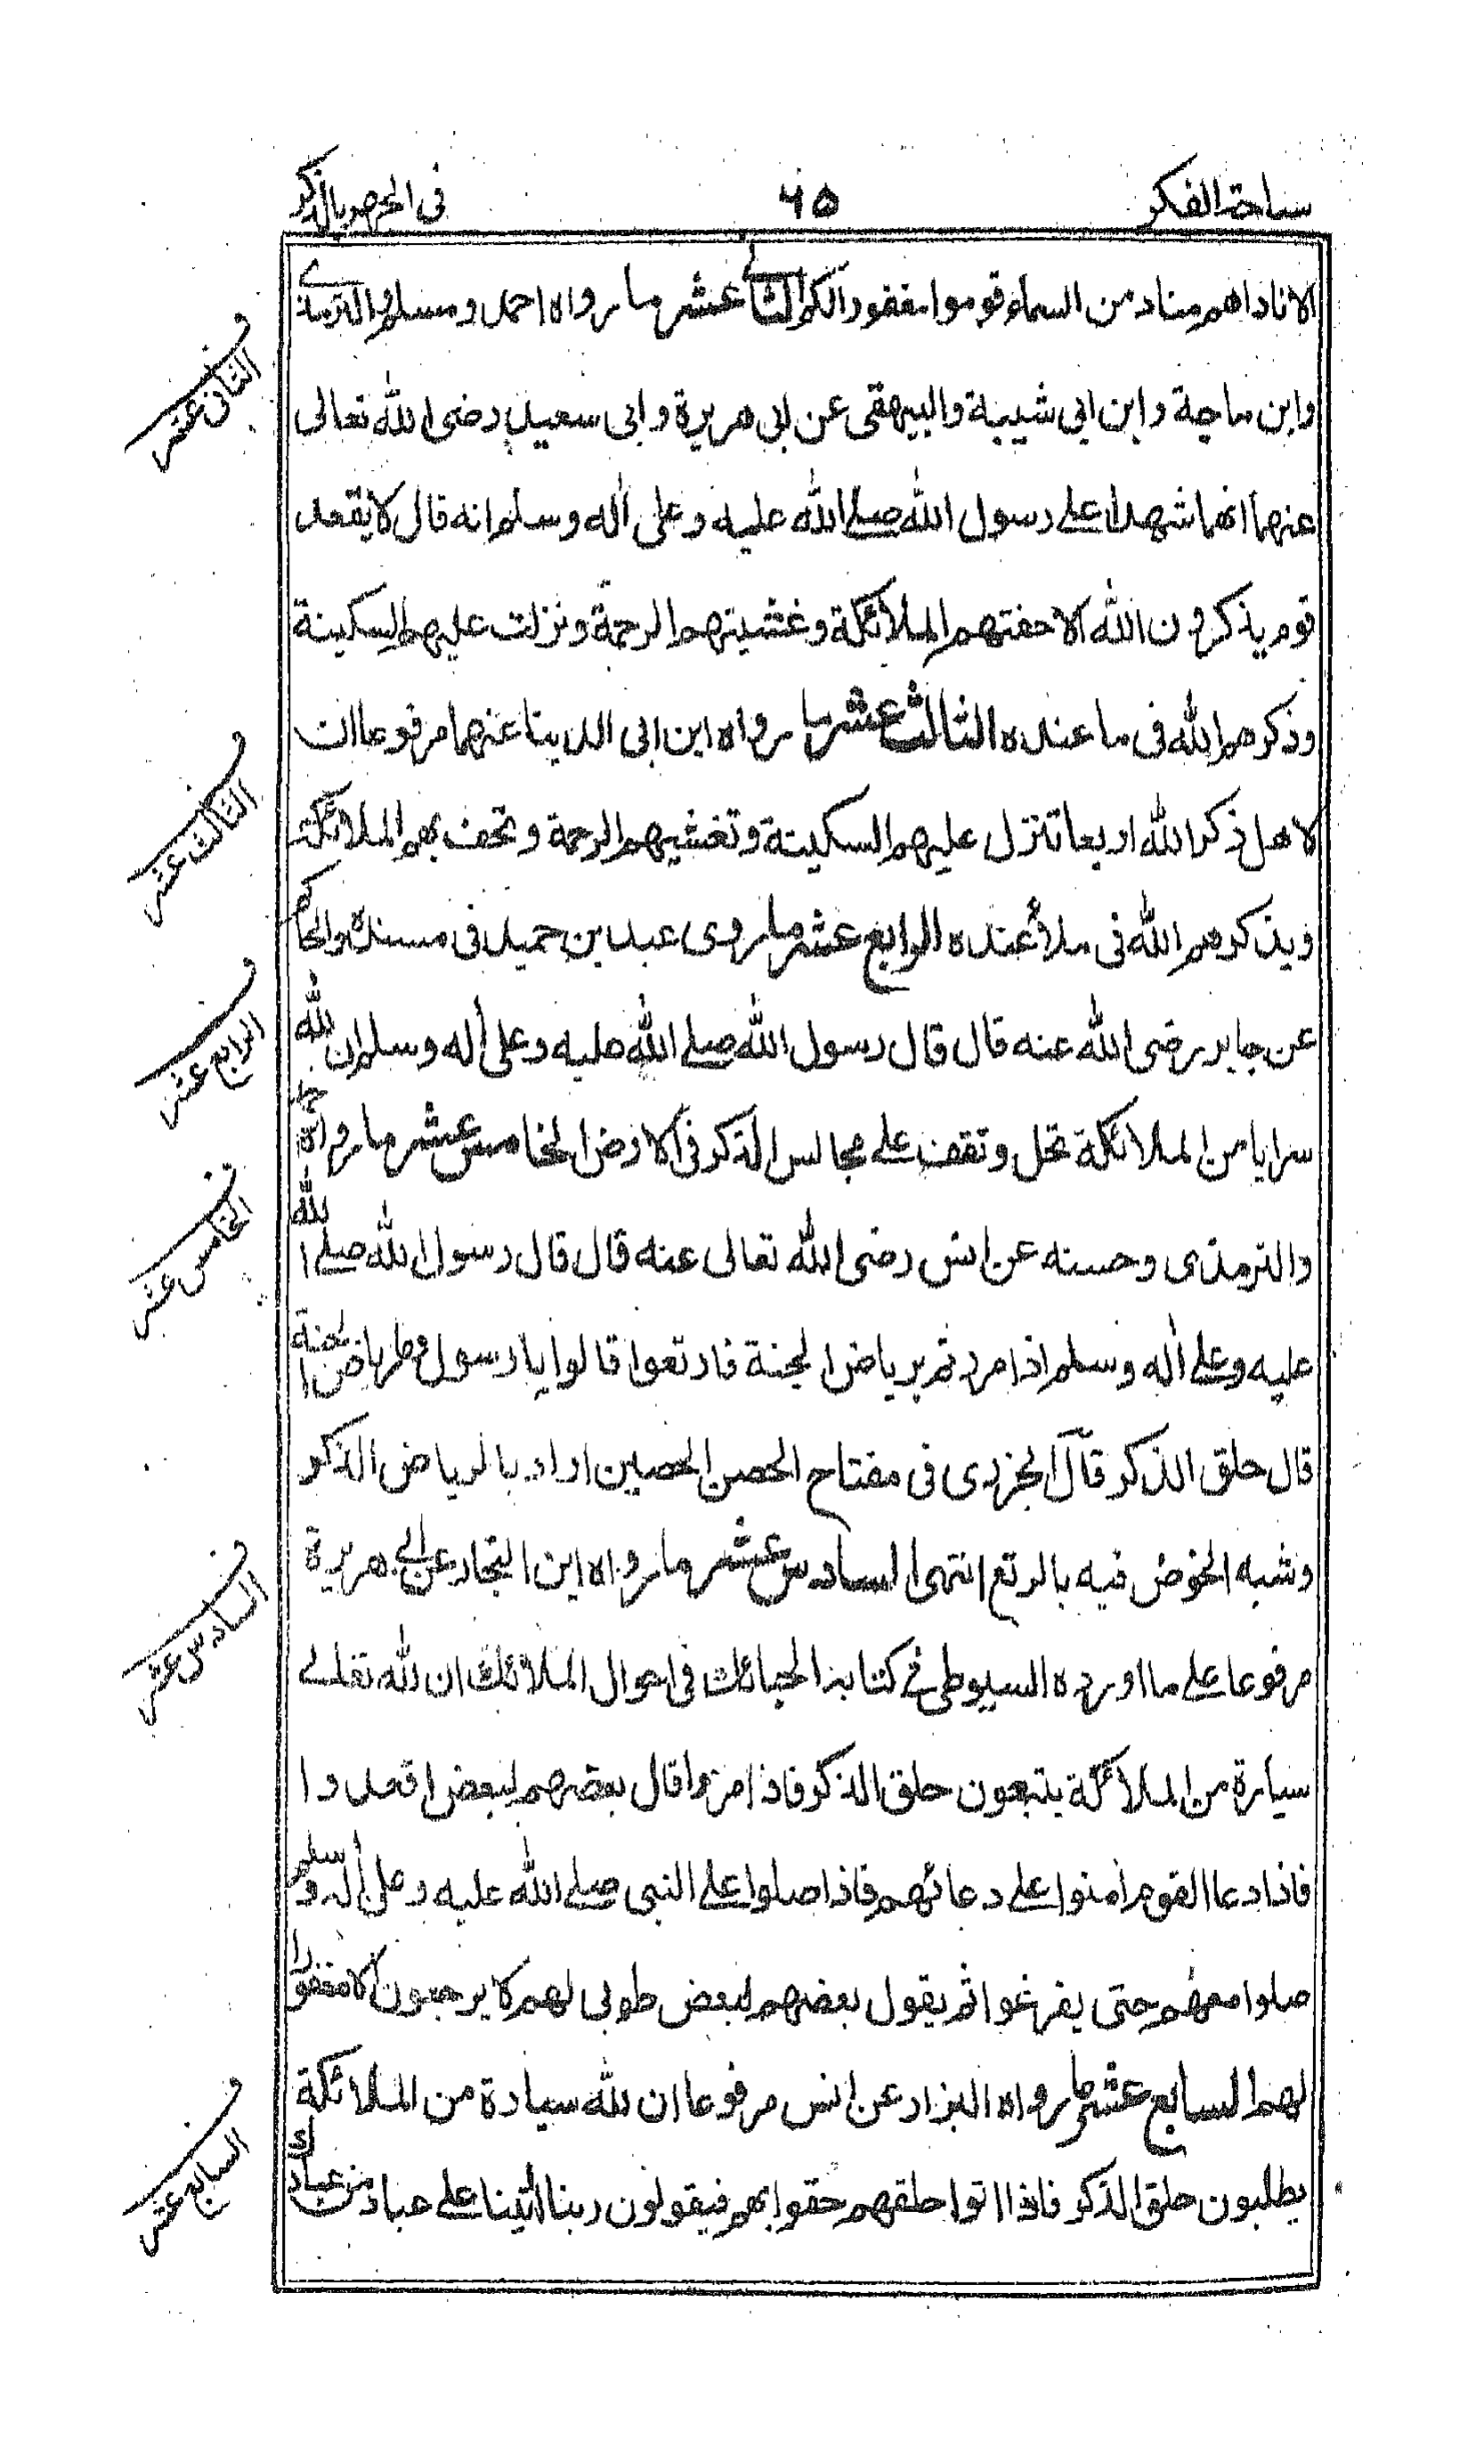 سباحة الفكر
٦٥
فى الجهر بالذكر
الا ناداهم مناد من السماء قوموا مغفورا لكم الثانے عشر ما رواه احمد ومسلم والترمذے
وابن ماجة وابن ابي شيبة والبيهقى عن ابي هريرة وابى سعيد رضى الله تعالى
عنهما انهما شهدا على رسول الله صلے الله عليه وعلى اٰله وسلم انه قال لا يقعد
قوم يذكرون الله الا حفتهم الملائكة وغشيتهم الرحمة ونزلت عليهم السكينة
وذكرهم الله فى ما عنده الثالث عشر ما رواه ابن ابى الدينا عنهما مرفوعا ان
لاهل ذكر الله اربعا تنزل عليهم السكينة وتغشيهم الرحمة وتحف بهم الملائكة
ويذكرهم الله فى ملأ عنده الرابع عشر ما روى عبد بن حميد فى مسنده والحاكم
عن جابر رضى الله عنه قال قال رسول الله صلے الله عليه وعلى اٰله وسلم ان لله
سرايا من الملائكة تحل وتقف على مجالس الذكر فى الارض الخامس عشر ما رواه احمد
والترمذى وحسنه عن انس رضى الله تعالى عنه قال قال رسول الله صلے الله
عليه وعلے اٰله وسلم اذا مررتم برياض الجنة فارتعوا قالوا يا رسول وما رياض الجنة
قال حلق الذكر قال الجزرى فى مفتاح الحصن الحصين اراد بالرياض الذكر
وشبه الخوض فيه بالرتع انتهى السادس عشر ما رواه ابن النجار عن ابي هريرة
مرفوعا على ما اورده السيوطى فے كتابه الحبائك فى احوال الملائك ان لله تعالے
سيارة من الملائكة يتبعون حلق الذكر فاذا مروا قال بعضهم لبعض اقعدوا
فاذا دعا القوم أمنوا على دعائهم فاذا صلوا على النبى صلے الله عليه وعلى اٰله وسلم
صلوا معهم حتى يفرغوا ثم يقول بعضهم لبعض طوبى لهم لا يرجعون الا مغفورا
لهم السابع عشر ما رواه البزار عن انس مرفوعا ان لله سيارة من الملائكة
يطلبون حلق الذكر فاذا اتوا حلقهم حفوا بهم فيقولون ربنا اتينا على عباد من عبادك
الثانى عشر
الثالث عشر
الرابع عشر
الخامس عشر
السادس عشر
السابع عشر